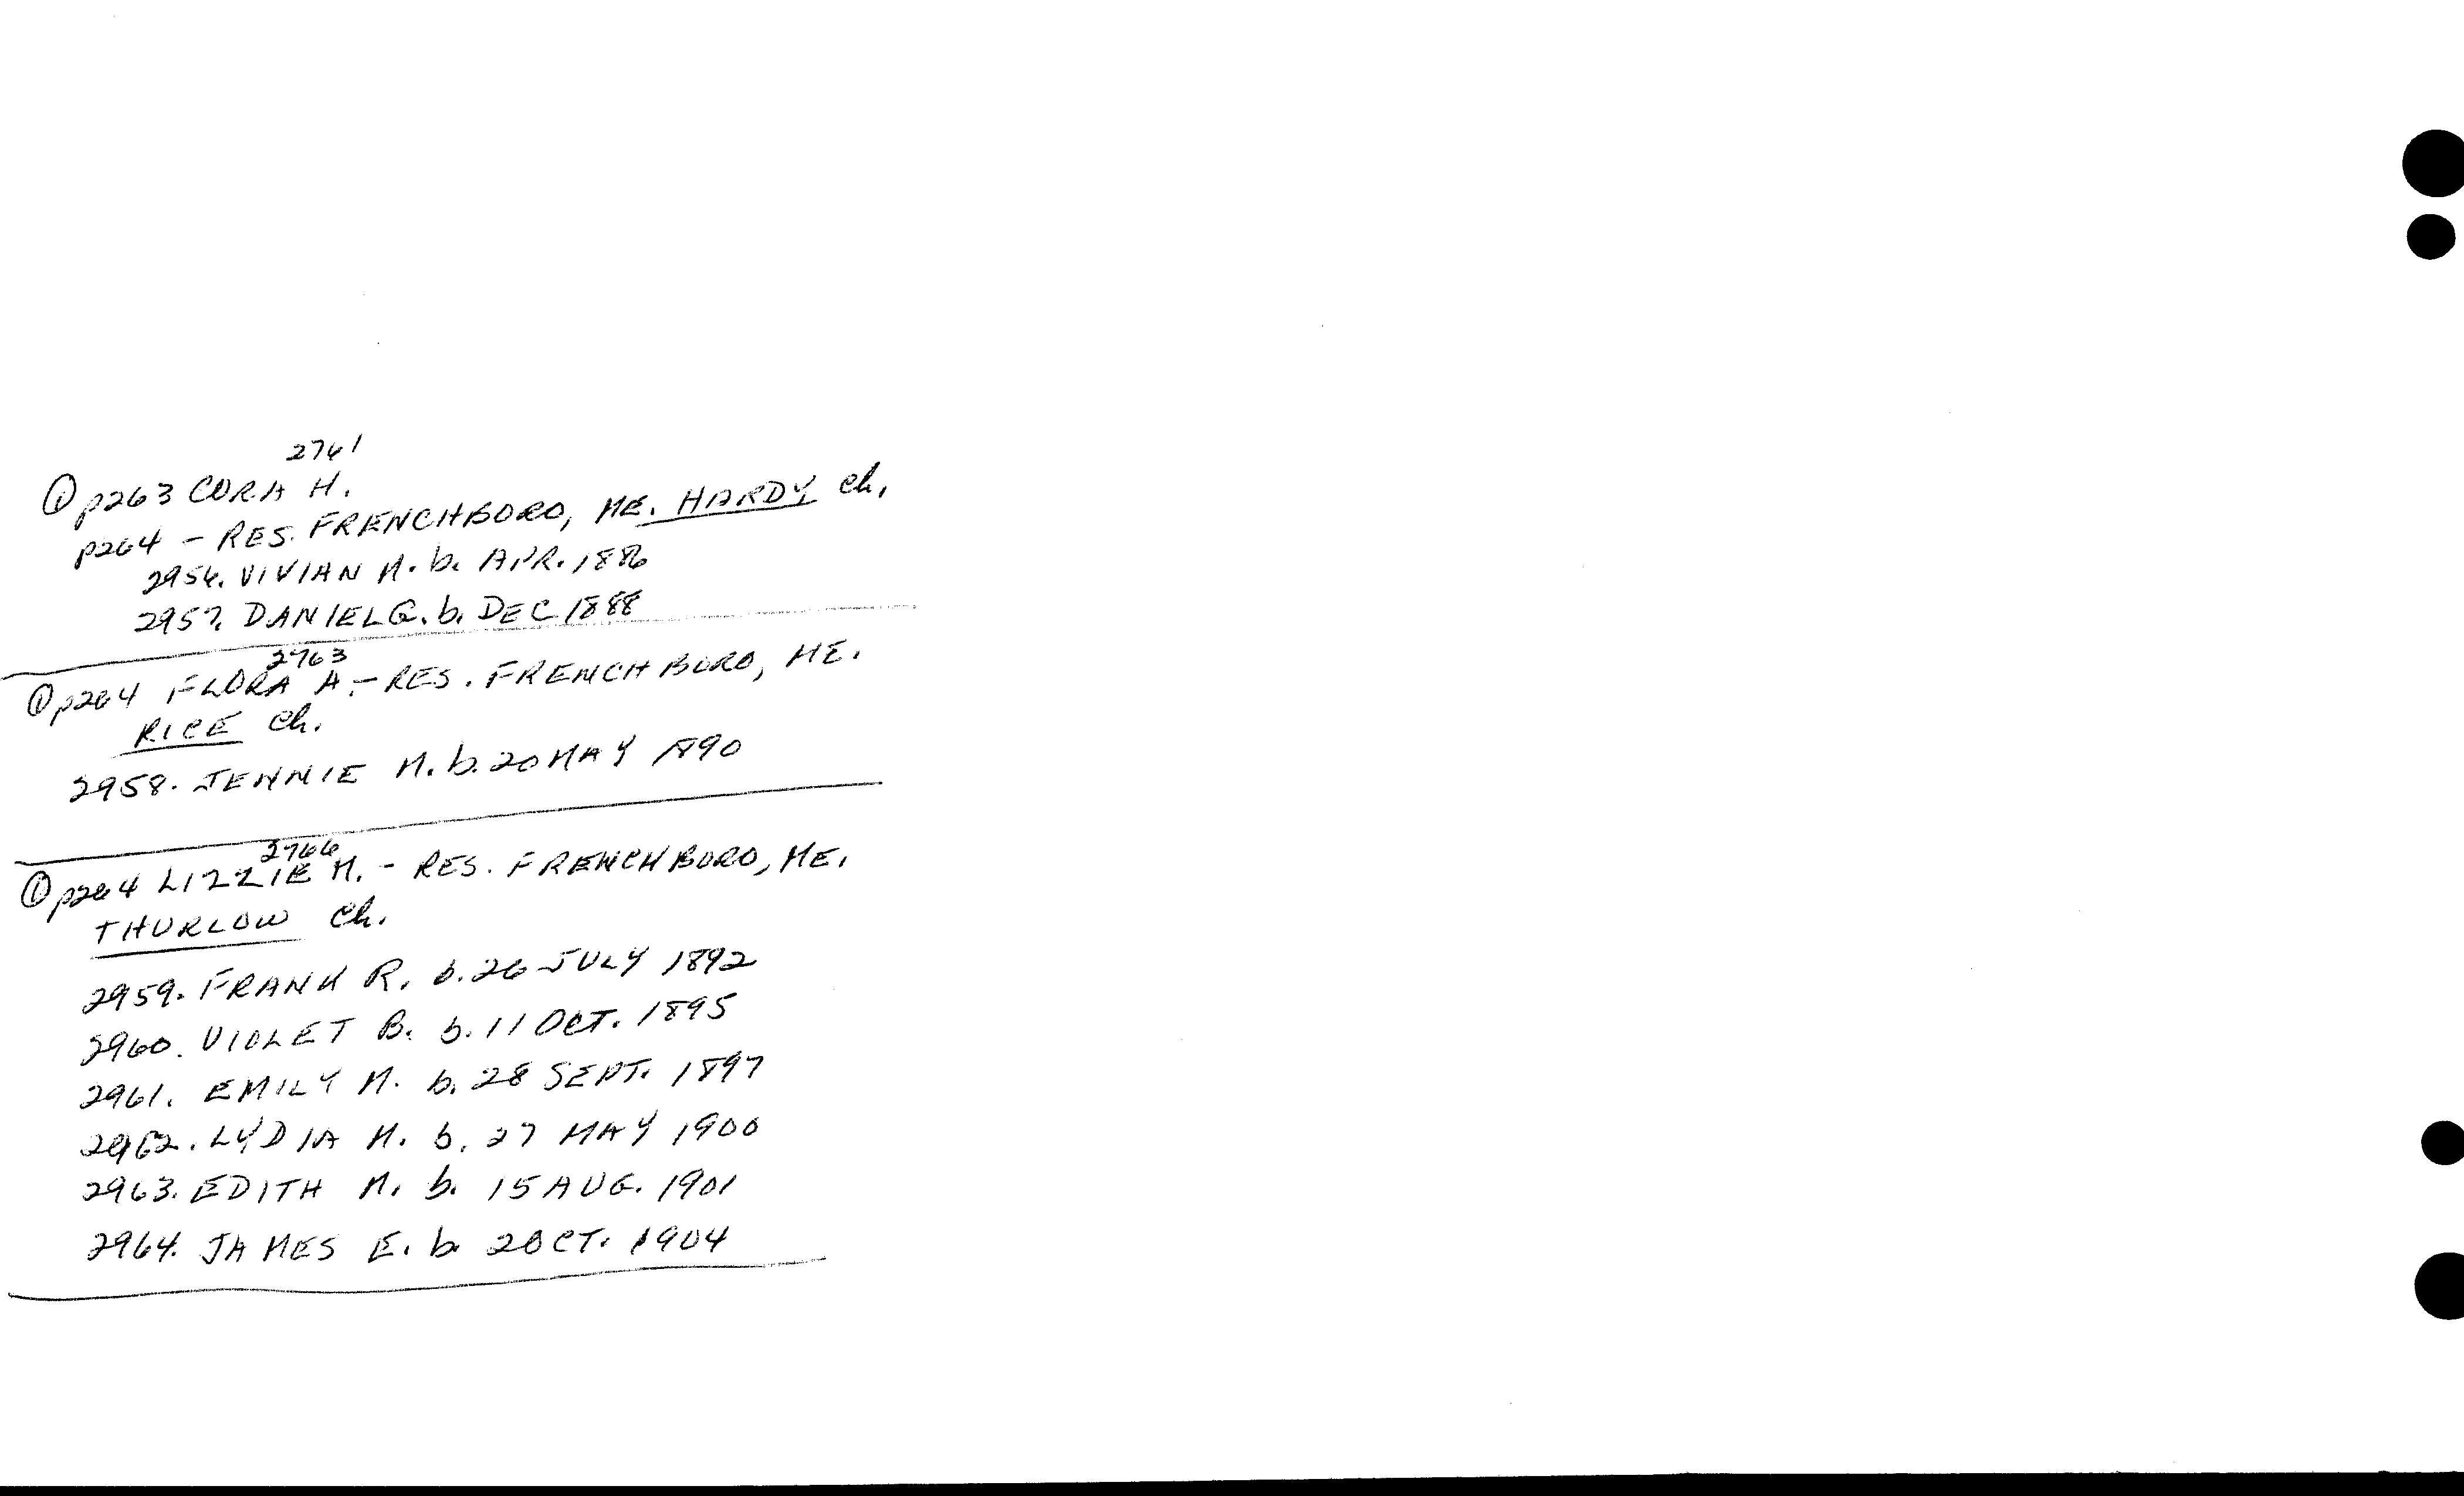 2761
① p263 CORA H.
p264 - RES. FRENCHBORO, ME. HARDY ch.
2956. VIVIAN M. b. APR. 1886
2957. DANIEL G. b. DEC 1888
2763
① p264 FLORA A. - RES. FRENCHBORO, ME.
RICE ch.
2958. JENNIE M. b. 20 MAY 1890
2766
① p264 LIZZIE M. - RES. FRENCHBORO, ME.
THURLOW ch.
2959. FRANK R. b. 26 JULY 1892
2960. VIOLET B. b. 11 OCT. 1895
2961. EMILY M. b. 28 SEPT. 1897
2962. LYDIA M. b. 27 MAY 1900
2963. EDITH M. b. 15 AUG. 1901
2964. JAMES E. b 2 OCT. 1904